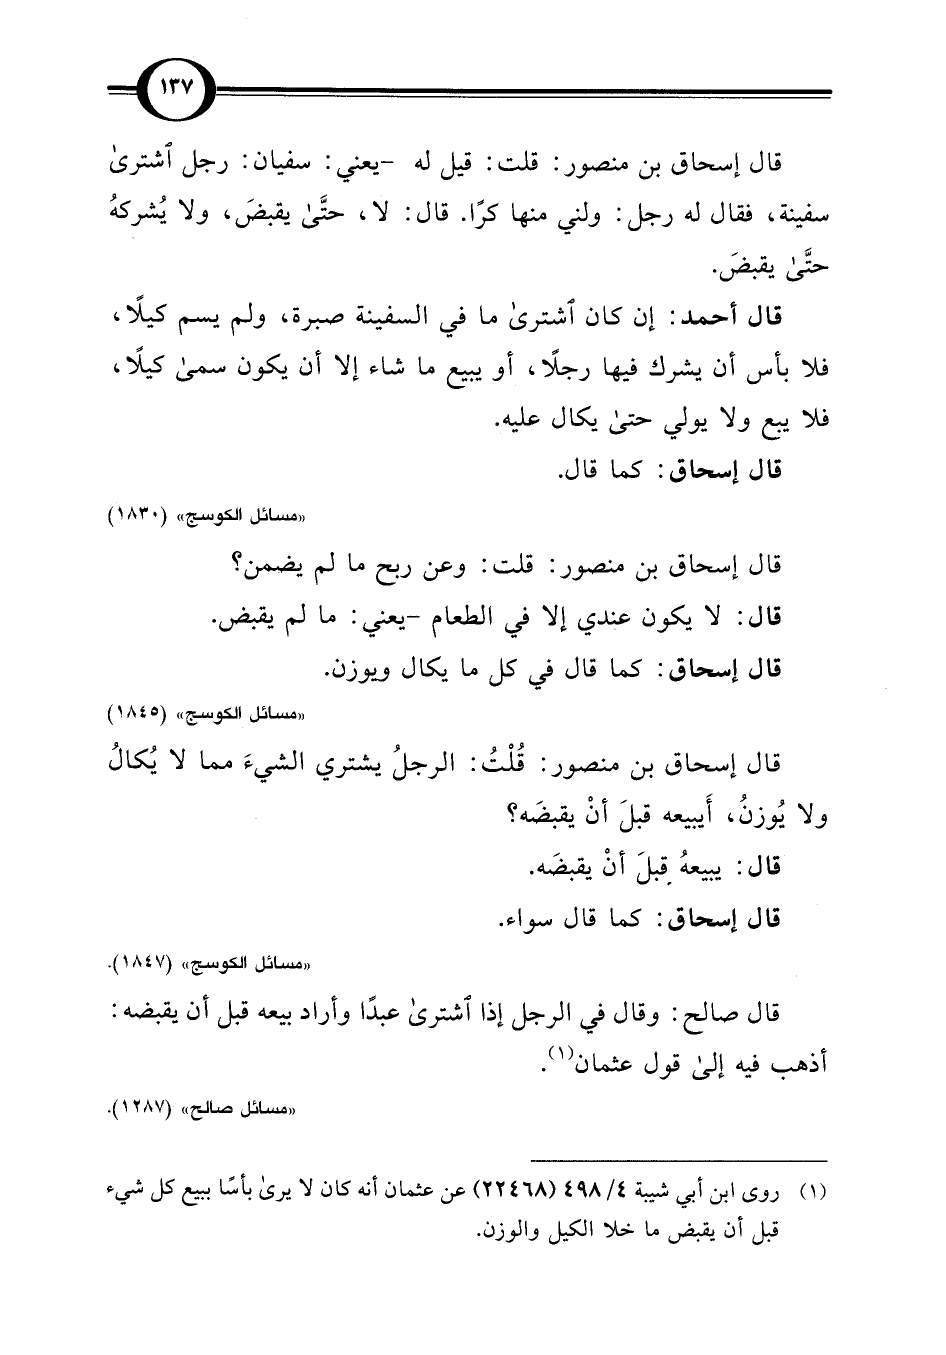 ١٣٧
قال إسحاق بن منصور: قلت: قيل له -يعني: سفيان: رجل ٱشترىٰ
سفينة، فقال له رجل: ولني منها كرًا. قال: لا، حتَّىٰ يقبضَ، ولا يُشركهُ
حتَّىٰ يقبضَ.
قال أحمد: إن كان ٱشترىٰ ما في السفينة صبرة، ولم يسم كيلًا،
فلا بأس أن يشرك فيها رجلًا، أو يبيع ما شاء إلا أن يكون سمىٰ كيلًا،
فلا يبع ولا يولي حتىٰ يكال عليه.
قال إسحاق: كما قال.
«مسائل الكوسج» (١٨٣٠)
قال إسحاق بن منصور: قلت: وعن ربح ما لم يضمن؟
قال: لا يكون عندي إلا في الطعام -يعني: ما لم يقبض.
قال إسحاق: كما قال في كل ما يكال ويوزن.
«مسائل الكوسج» (١٨٤٥)
قال إسحاق بن منصور: قُلْتُ: الرجلُ يشتري الشيءَ مما لا يُكالُ
ولا يُوزنُ، أَيبيعه قبلَ أنْ يقبضَه؟
قال: يبيعهُ قبلَ أنْ يقبضَه.
قال إسحاق: كما قال سواء.
«مسائل الكوسج» (١٨٤٧).
قال صالح: وقال في الرجل إذا ٱشترىٰ عبدًا وأراد بيعه قبل أن يقبضه:
أذهب فيه إلىٰ قول عثمان(١).
«مسائل صالح» (١٢٨٧).
(١) روى ابن أبي شيبة ٤/ ٤٩٨ (٢٢٤٦٨) عن عثمان أنه كان لا يرىٰ بأسًا ببيع كل شيء
قبل أن يقبض ما خلا الكيل والوزن.